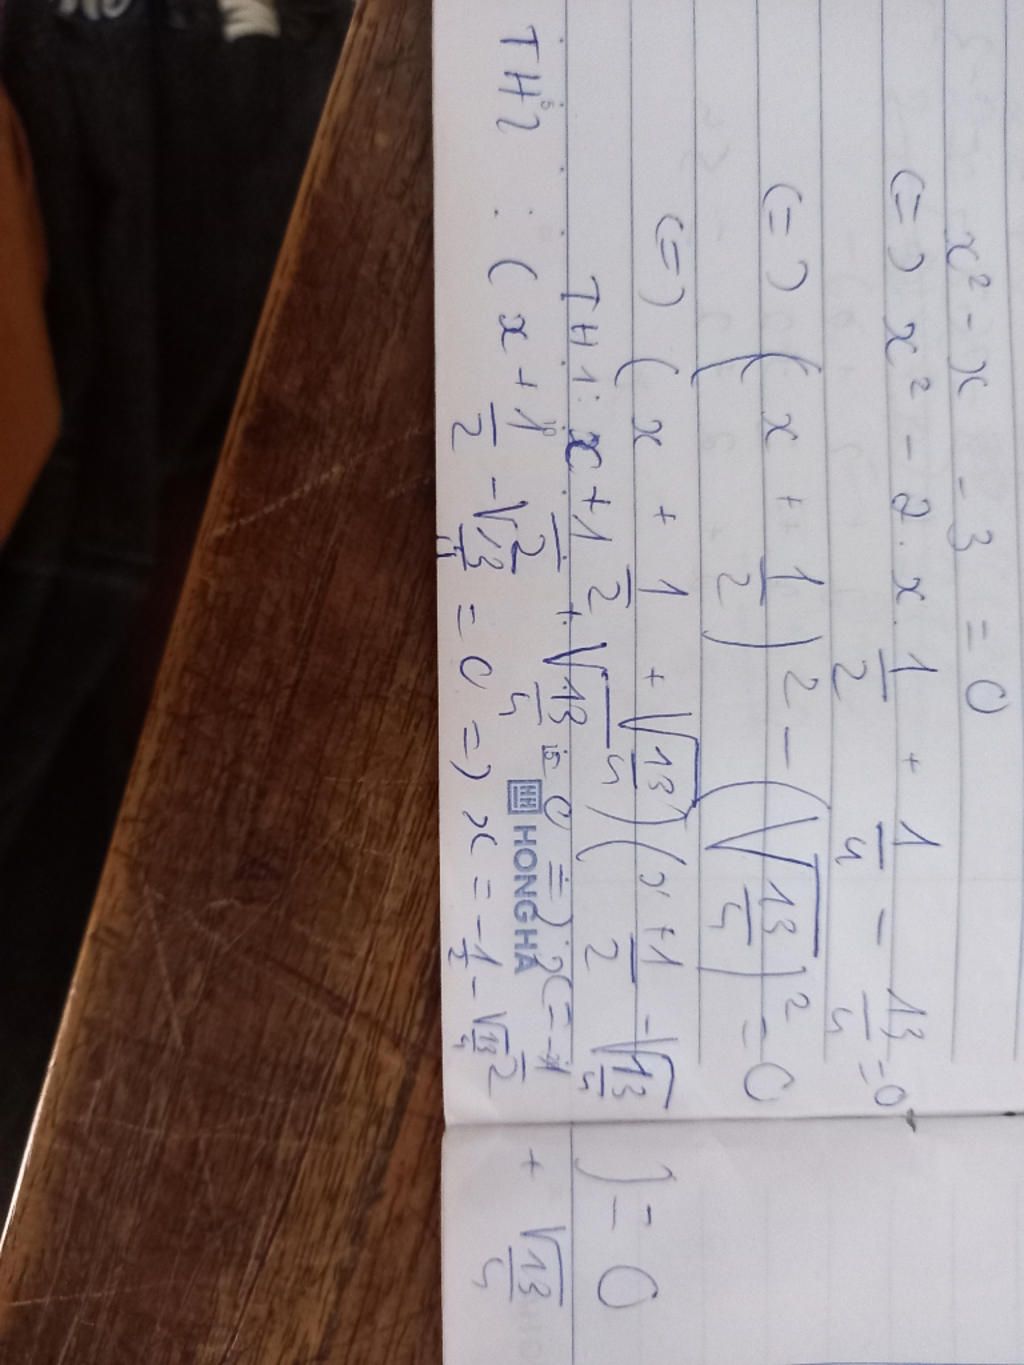 x² - x - 3 = 0
(=) x² - 2 . x . 1/2 + 1/4 - 13/4 = 0
(=) ((x + 1/2)² - (√13/4)² = 0
(=) (x + 1/2 + √13/4) (x + 1/2 - √13/4) = 0
TH1: x + 1/2 + √13/4 = 0 =) x = -1/2 + √13/4
TH2 : (x + 1/2 - √13/4 = 0 =) x = -1/2 - √13/4
HONG HA